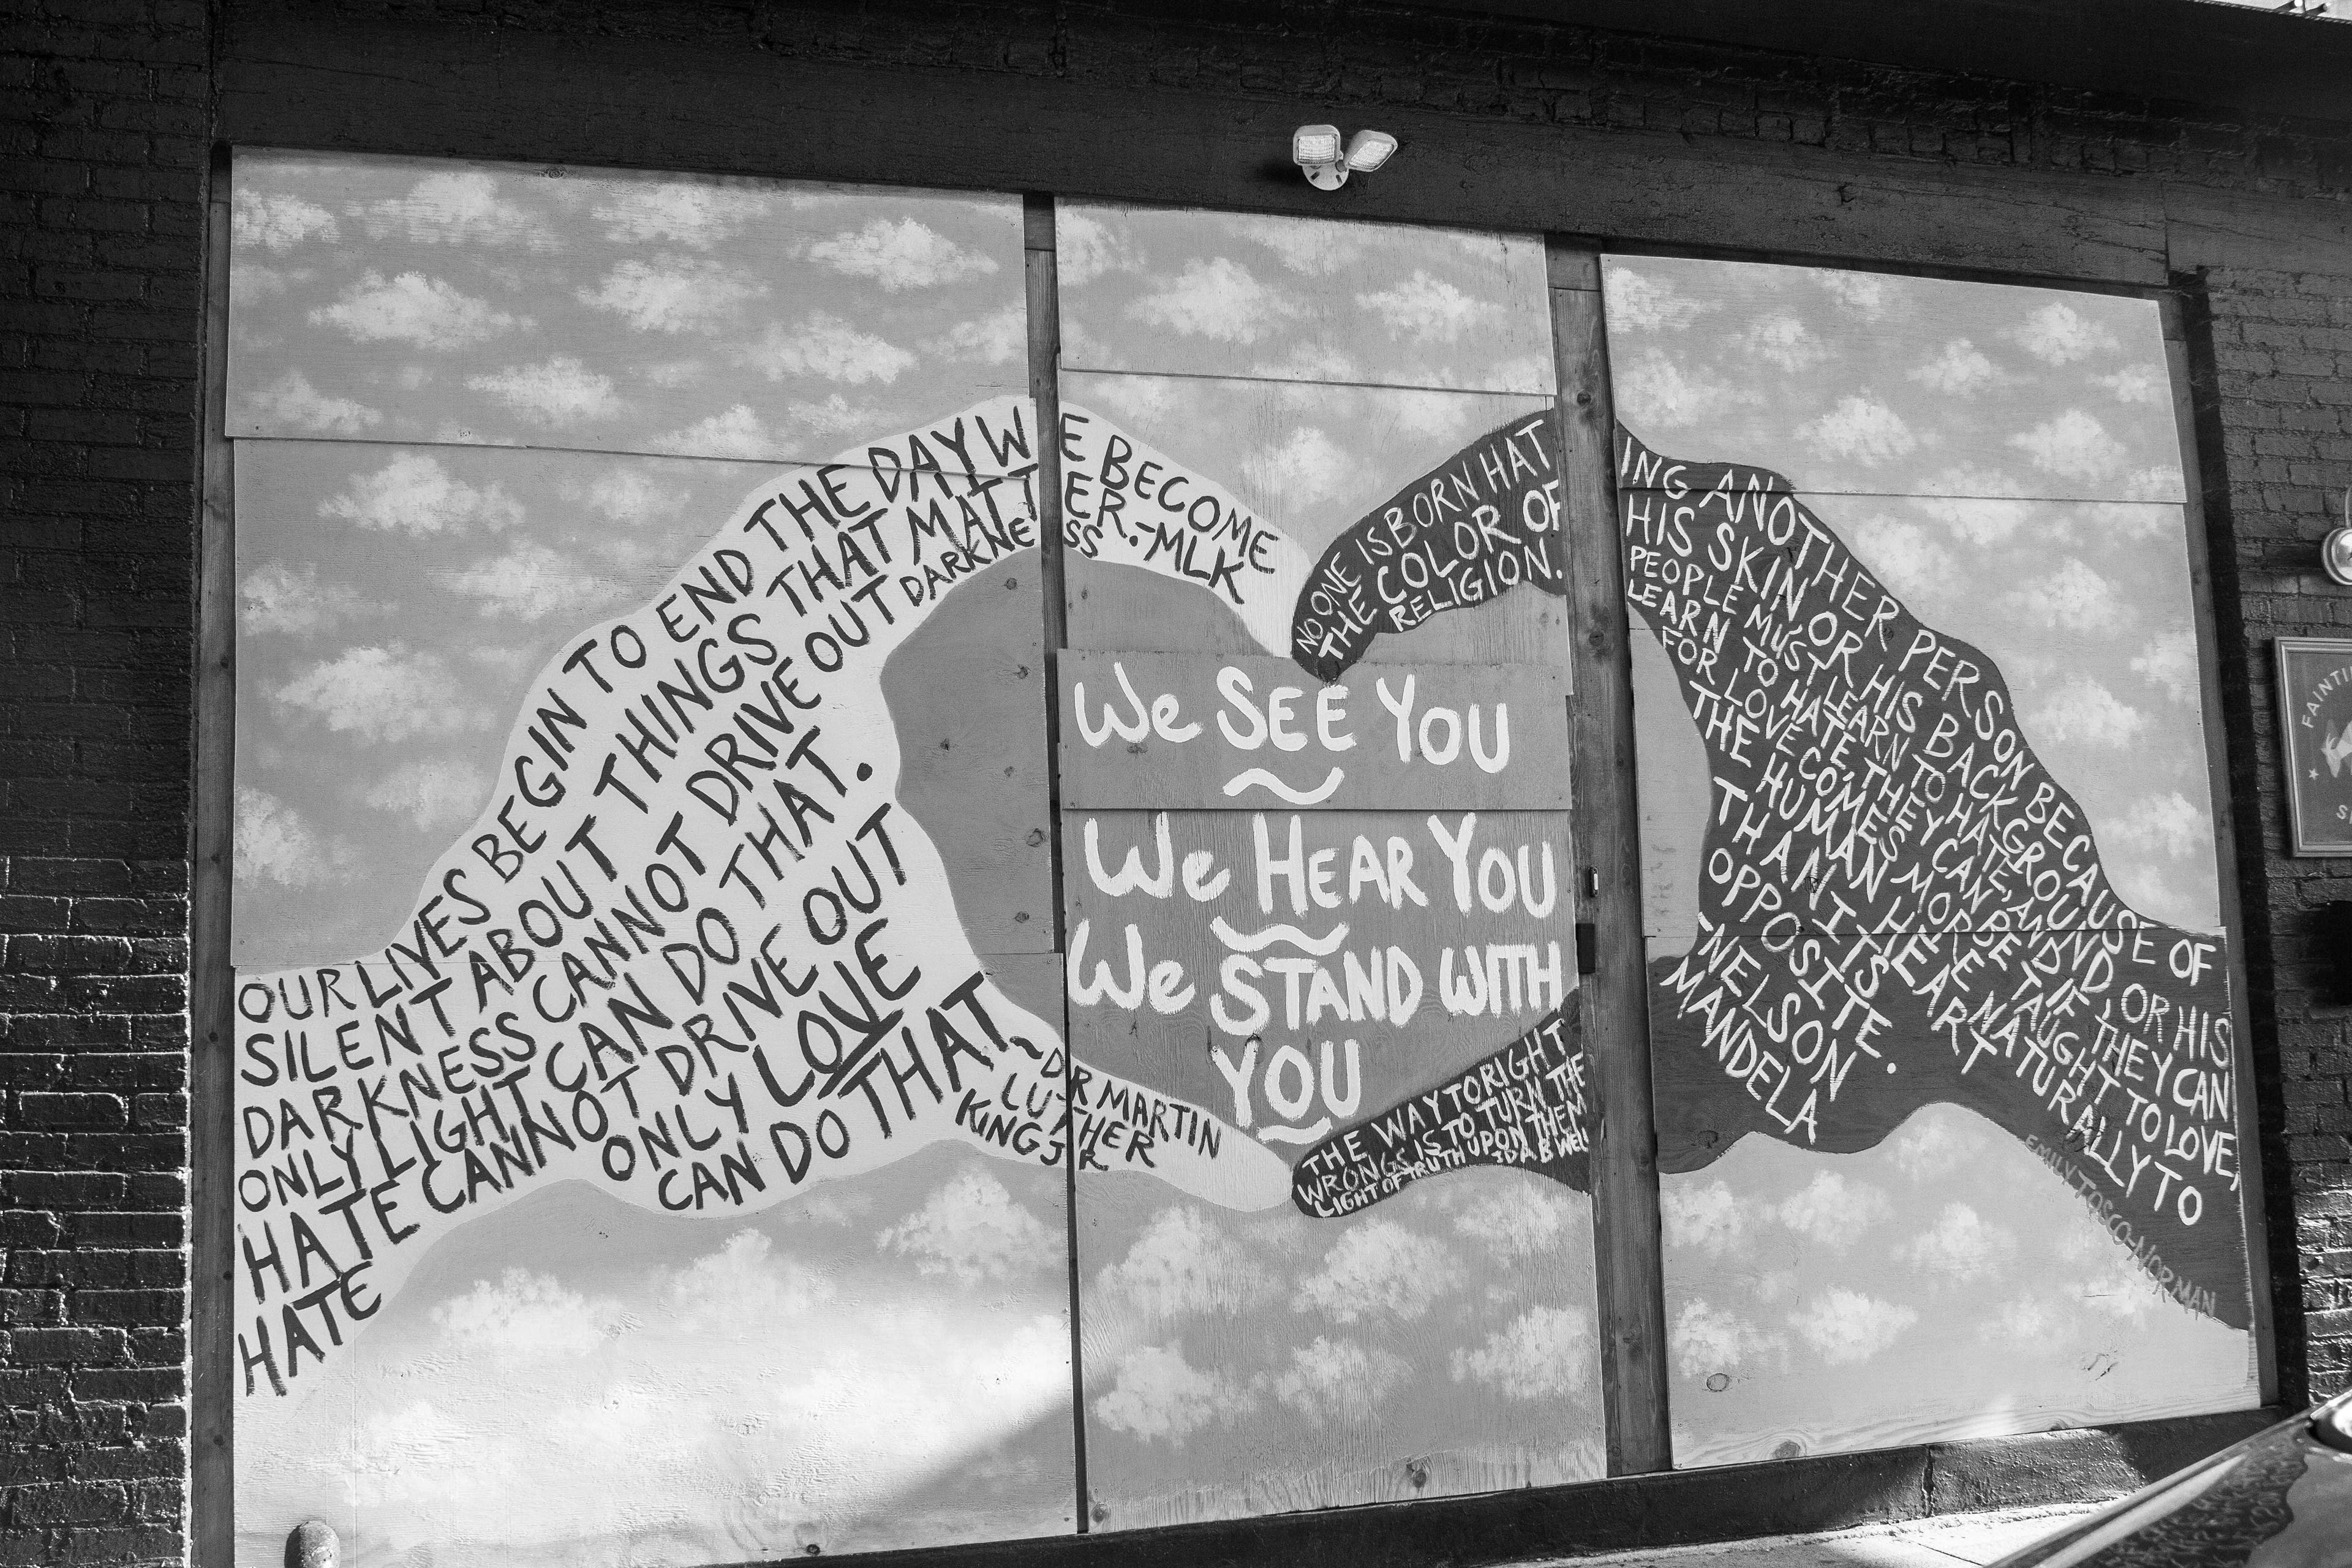 OUR LIVES BEGIN TO END THE DAY WE BECOME
SILENT ABOUT THINGS THAT MATTER.-MLK
DARKNESS CANNOT DRIVE OUT DARKNESS
ONLY LIGHT CAN DO THAT.
HATE CANNOT DRIVE OUT
HATE
ONLY LOVE
CAN DO THAT.
~DR MARTIN
LUTHER
KING JR
We SEE YOU
We HEAR YOU
We STAND WITH
YOU
NO ONE IS BORN HATING ANOTHER PERSON BECAUSE OF
THE COLOR OF HIS SKIN OR HIS BACKGROUND, OR HIS
RELIGION. PEOPLE MUST LEARN TO HATE, AND IF THEY CAN
LEARN TO HATE, THEY CAN BE TAUGHT TO LOVE,
FOR LOVE COMES MORE NATURALLY TO
THE HUMAN HEART
THAN ITS
OPPOSITE.
-NELSON
MANDELA
THE WAY TO RIGHT
WRONGS IS TO TURN THE
LIGHT OF TRUTH UPON THEM
EMILY TOSCO-NORMAN